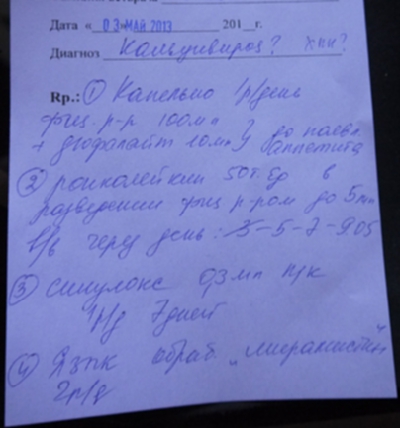 Дата « 03 МАЙ 2013 201__г.
Диагноз Кальцивироз? хпн?
Rp.: ① Капельно 1р/день
физ. р-р 100мл } до появл.
+ дюфалайт 10мл аппетита
② ронколейкин 50т. Ед в
разведении физ р-ром до 5мл
В/в через день: 3-5-7-9.05
③ синулокс 0,3 мл п/к
1р/д 7дней
④ Язык обраб. „мирамистин"
2р/д